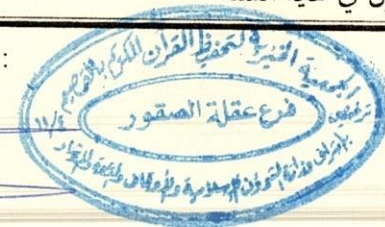 الجمعية الخيرية لتحفيظ القرآن الكريم بالقصيم
ترخيص
١١/٤
فرع عقلة الصقور
بإشراف وزارة الشؤون الإسلامية والأوقاف والدعوة والإرشاد
: